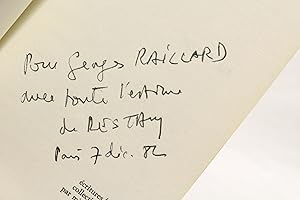 Pour Georges RAILLARD
avec toute l'estime
de RESTANY
Paris 7 déc. 82
écritures
collecti
par m